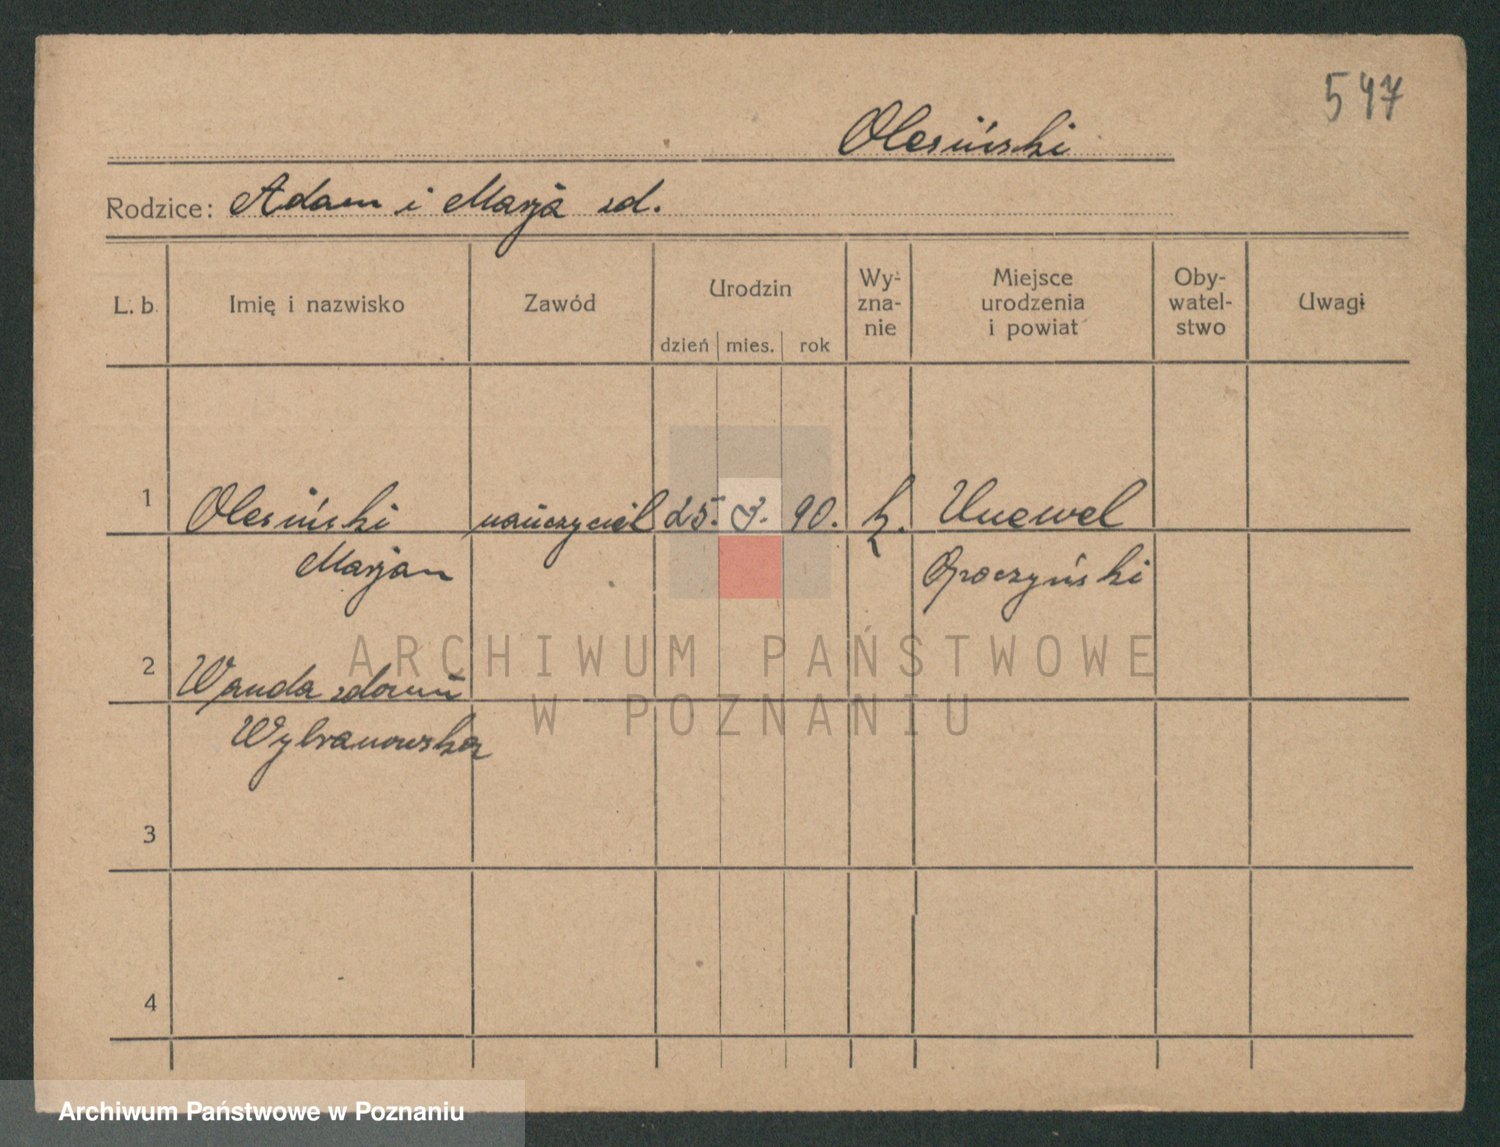 547
Olesiński
Rodzice: Adam i Marja zd.
L. b. Imię i nazwisko Zawód Urodzin dzień mies. rok Wy- zna- nie Miejsce urodzenia i powiat Oby- watel- stwo Uwagi
1 Olesiński nauczyciel 25. 90. k. Unewel
Marjan Opoczyński
2 Wanda zdomu
Wybranowska
3
4
ARCHIWUM PAŃSTWOWE
W POZNANIU
Archiwum Państwowe w Poznaniu